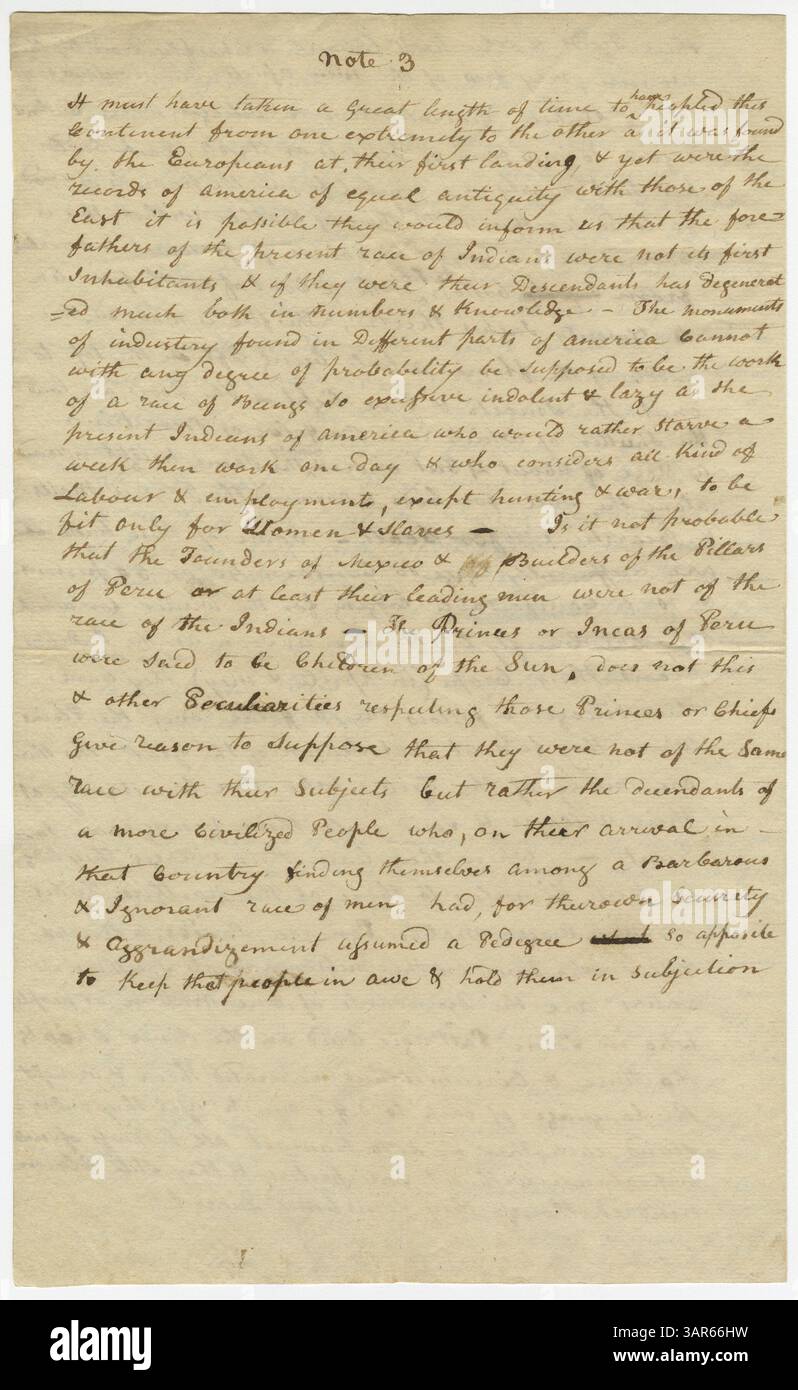 Note 3
It must have taken a great length of time to have peopled this
Continent from one extremety to the other as it was found
by the Europeans at their first landing, & yet were the
records of america of equal antiquity with those of the
East it is possible they would inform us that the fore=
fathers of the present race of Indians were not its first
Inhabitants & if they were their Descendants has degenerat
=ed much both in numbers & Knowledge – The monuments
of industery found in Different parts of america Cannot
with any degree of probability be supposed to be the work
of a race of Beings so exessive indolent & lazy as the
present Indians of america who would rather starve a
week then work one day & who considers all Kind of
Labour & employment, except hunting & war, to be
fit only for Women & Slaves – Is it not probable
that the Founders of Mexico & Builders of the Pillars
of Peru or at least their leading men were not of the
race of the Indians – The Princes or Incas of Peru
were said to be Children of the Sun, does not this
& other Peculiarities respecting those Princes or Chiefs
Give reason to suppose that they were not of the Same
race with their Subjects but rather the decendants of
a more Civilized People who, on their arrival in –
that Country finding themselves among a Barbarous
& Ignorant race of men had, for their own Security
& Aggrandizement assumed a Pedigree so apposite
to Keep that people in awe & hold them in subjection
alamy
Image ID: 3AR66HW
www.alamy.com